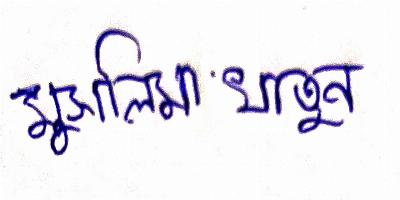 মুসলিমা খাতুন